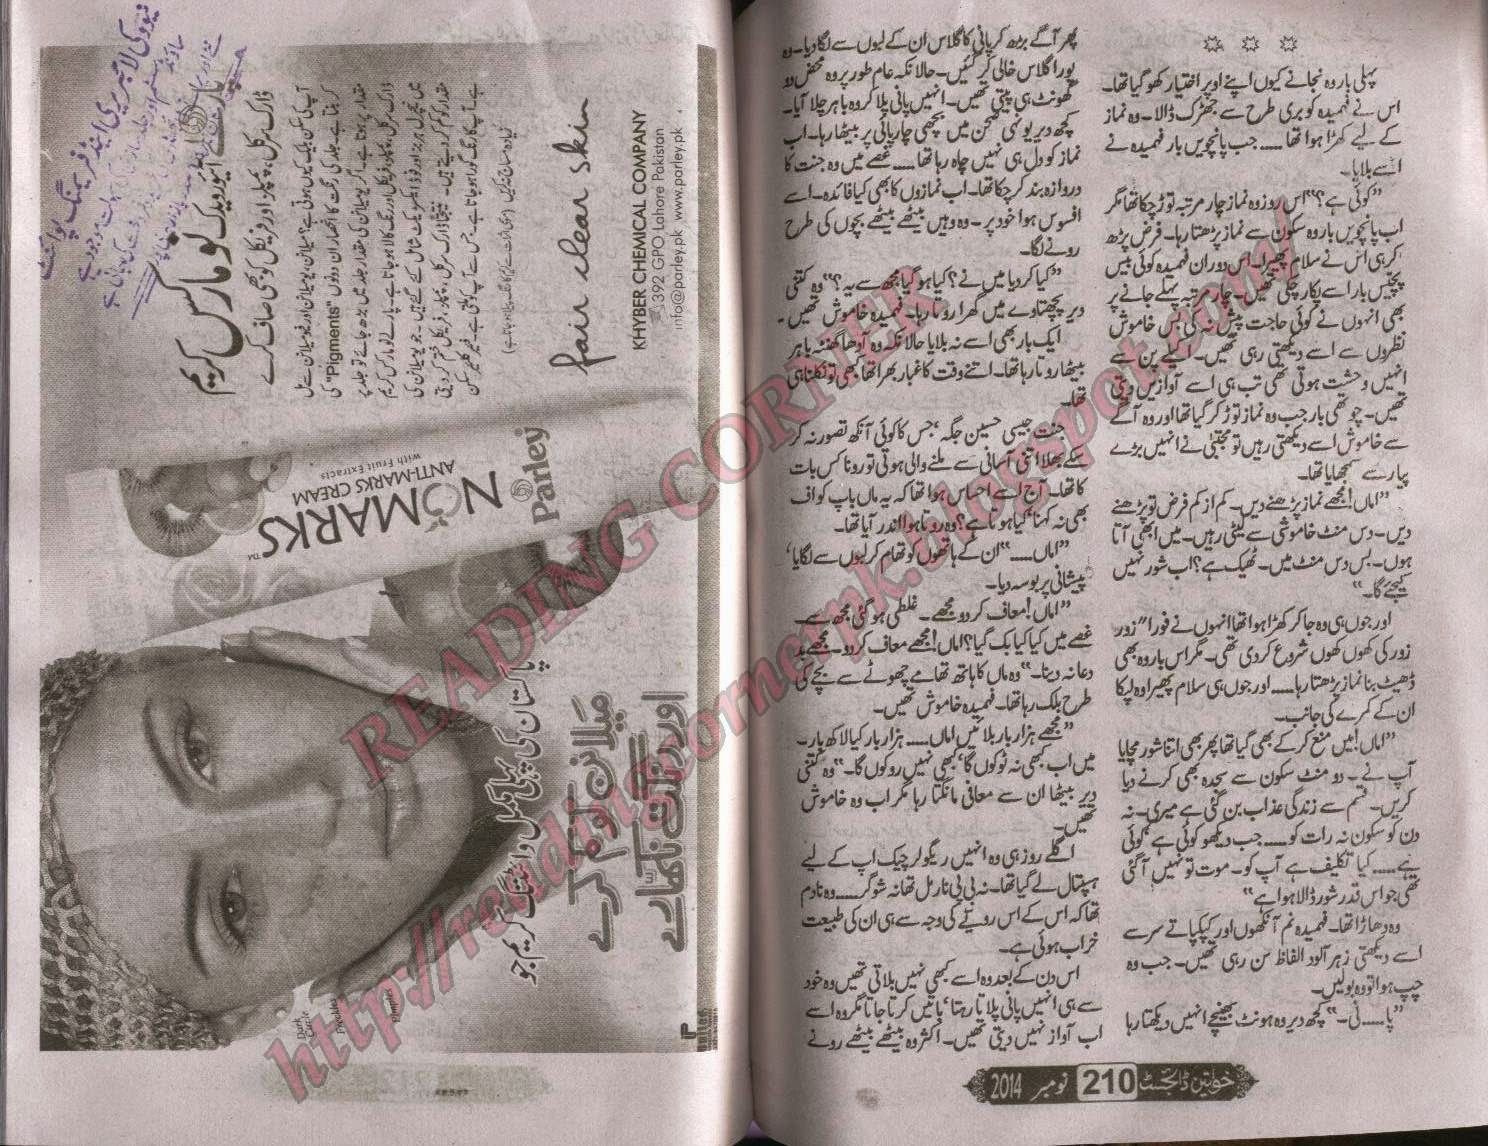 پہلی بار وہ نجانے کیوں اپنے اوپر اختیار کھو گیا تھا۔
اس نے فہمیدہ کو بری طرح سے جھڑک ڈالا۔ وہ نماز
کے لیے کھڑا ہوا تھا ..... جب پانچویں بار فہمیدہ نے
اسے بلایا۔
”کوئی ہے؟“ اس روز وہ نماز چار مرتبہ توڑ چکا تھا مگر
اب پانچویں بار وہ سکون سے نماز پڑھتا رہا۔ فرض پڑھ
کر ہی اس نے سلام پھیرا۔ اس دوران فہمیدہ کوئی بیس
پچیس بار اسے پکار چکی تھیں۔ چار مرتبہ پہلے جانے پر
بھی انہوں نے کوئی حاجت پیش نہ کی بس خاموش
نظروں سے اسے دیکھتی رہی تھیں۔ اکیلے پن سے
انہیں وحشت ہوتی تھی تب ہی اسے آوازیں دیتی
تھیں۔ چوتھی بار جب وہ نماز توڑ کر گیا تھا اور وہ آگے
سے خاموش اسے دیکھتی رہیں تو مجتبیٰ نے انہیں بڑے
پیار سے سمجھایا تھا۔
”اماں! مجھے نماز پڑھنے دیں۔ کم از کم فرض تو پڑھنے
دیں۔ دس منٹ خاموشی سے لیٹی رہیں۔ میں ابھی آتا
ہوں۔ بس دس منٹ میں۔ ٹھیک ہے؟ اب شور نہیں
کیجئے گا۔“
اور جوں ہی وہ جا کر کھڑا ہوا تھا انہوں نے فوراً ”زور
زور کی کھوں کھوں شروع کردی تھی۔ مگر اس بار وہ بھی
ڈھیٹ بنا نماز پڑھتا رہا ..... اور جوں ہی سلام پھیرا وہ لپکا
ان کے کمرے کی جانب۔
”اماں! میں منع کر کے بھی گیا تھا پھر بھی اتنا شور مچایا
آپ نے۔ دو منٹ سکون سے سجدہ بھی کرنے دیا
کریں۔ قسم سے زندگی عذاب بن گئی ہے میری۔ نہ
دن کو سکون نہ رات کو ..... جب دیکھو کوئی ہے ’کوئی
ہے ..... کیا تکلیف ہے آپ کو۔ موت تو نہیں آگئی
تھی جو اس قدر شور ڈالا ہوا ہے“
وہ دھاڑا تھا۔ فہمیدہ نم آنکھوں اور کپکپاتے سر سے
اسے دیکھتی زہر آلود الفاظ سن رہی تھیں۔ جب وہ
چپ ہوا تو وہ بولیں۔
”پا ..... نی۔“ کچھ دیر وہ ہونٹ بھینچے انہیں دیکھتا رہا
پھر آگے بڑھ کر پانی کا گلاس ان کے لبوں سے لگا دیا۔ وہ
پورا گلاس خالی کر گئیں۔ حالانکہ عام طور پر وہ محض دو
گھونٹ ہی پیتی تھیں۔ انہیں پانی پلا کر وہ باہر چلا آیا۔
کچھ دیر یونہی صحن میں بچھی چارپائی پر بیٹھا رہا۔ اب
نماز کو دل ہی نہیں چاہ رہا تھا ..... غصے میں وہ جنت کا
دروازہ بند کر چکا تھا۔ اب نمازوں کا بھی کیا فائدہ۔ اسے
افسوس ہوا خود پر۔ وہ وہیں بیٹھے بیٹھے بچوں کی طرح
رونے لگا۔
”کیا کر دیا میں نے؟ کیا ہو گیا مجھ سے یہ؟“ وہ کتنی
دیر پچھتاوے میں گھرا روتا رہا۔ فہمیدہ خاموش تھیں۔
ایک بار بھی اسے نہ بلایا حالانکہ وہ آدھا گھنٹہ باہر
بیٹھا روتا رہا تھا۔ اتنے وقت کا غبار بھرا تھا کبھی تو نکلنا ہی
تھا۔
جنت جیسی حسین جگہ ’جس کا کوئی آنکھ تصور نہ کر
سکے بھلا اتنی آسانی سے ملنے والی ہوتی تو رونا کس بات
کا تھا۔ آج اسے احساس ہوا تھا کہ یہ ماں باپ کو اف
بھی نہ کہنا‘ کیا ہوتا ہے؟ وہ روتا ہوا اندر آیا تھا۔
”اماں .....“ ان کے ہاتھوں کو تھام کر لبوں سے لگایا‘
پیشانی پر بوسہ دیا۔
”اماں! معاف کر دو مجھے۔ غلطی ہو گئی مجھ سے۔
غصے میں کیا کیا بک گیا؟ اماں! مجھے معاف کر دو۔ مجھے بد
دعا نہ دینا۔“ وہ ماں کا ہاتھ تھامے چھوٹے سے بچے کی
طرح بلک رہا تھا۔ فہمیدہ خاموش تھیں۔
”مجھے ہزار بار بلائیں اماں ..... ہزار بار کیا لاکھ بار۔
میں اب کبھی نہ ٹوکوں گا‘ کبھی نہیں روکوں گا۔“ وہ کتنی
دیر بیٹھا ان سے معافی مانگتا رہا مگر اب وہ خاموش
تھیں۔
اگلے روز ہی وہ انہیں ریگولر چیک اپ کے لیے
ہسپتال لے گیا تھا۔ نہ بی پی نارمل تھا نہ شوگر ..... وہ نادم
تھا کہ اس کے اس رویے کی وجہ سے ہی ان کی طبیعت
خراب ہوئی ہے۔
اس دن کے بعد وہ اسے کبھی نہیں بلاتی تھیں وہ خود
سے ہی انہیں پانی پلاتا رہتا‘ باتیں کرتا جاتا مگر وہ اسے
اب آواز نہیں دیتی تھیں۔ اکثر وہ بیٹھے بیٹھے رونے
خواتین ڈائجسٹ 210 نومبر 2014
نومارکس کریم
ڈارک سرکل، پمپلز اور فریکل کو بھی صاف کرے
"Pigments"
fair clear skin
KHYBER CHEMICAL COMPANY
392 GPO Lahore Pakistan
info@parley.pk www.parley.pk
Parley
NOMARKS™
ANTI-MARKS CREAM
with Fruit Extracts
پاکستان کی پہلی مکمل وائٹننگ کریم جو
میلانن کو کم کرے
اور رنگت نکھارے
Dark Circle
Freckles
Pimples
READING CORNER
http://readingcornerpk.blogspot.com/